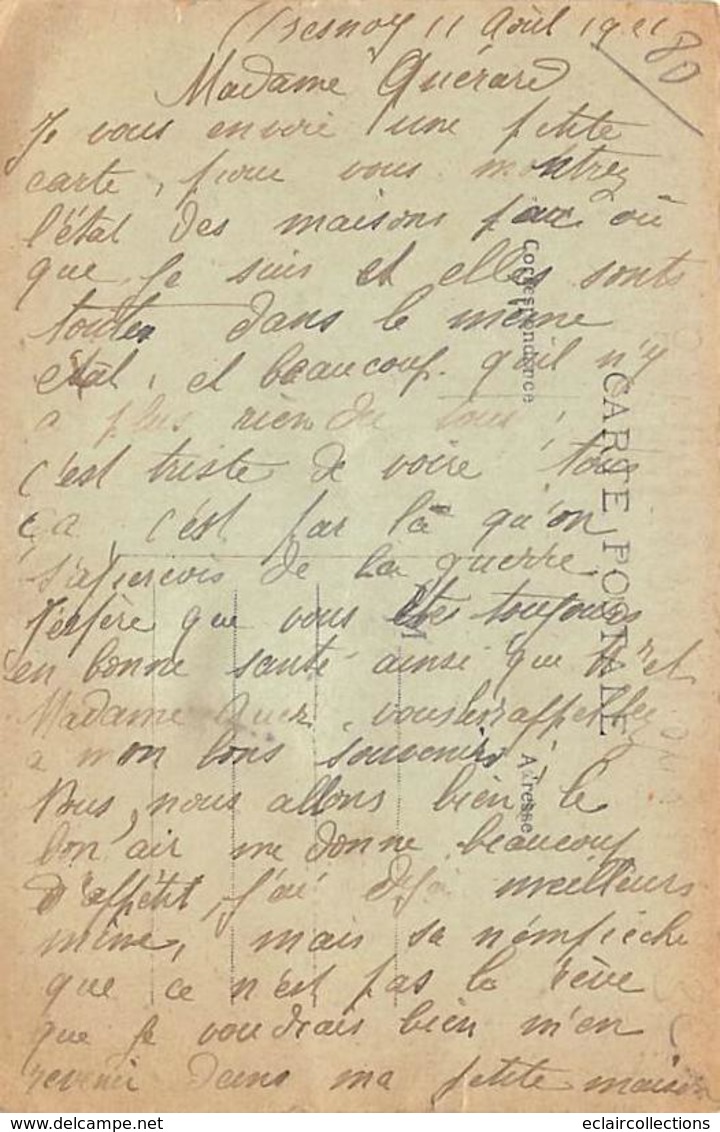 Fresnoy 11 Août 19
80
Madame Quérard
Je vous envoie une petite
carte, pour vous montrez
l'état des maisons par où
que je suis et elles sonts
toutes dans le meme
état, et beaucoup qu'il n'y
a plus rien du tous,
c'est triste de voire tous
ça, c'est par là qu'on
s'apercois de la guerre
J'espère que vous êtes toujours
en bonne santé ainsi que Mr et
Madame vous
a mon bons souvenirs
nous allons bien le
bon air me donne beaucoup
d'appétit, j'ai déja meilleurs
mine, mais sa n'empièche
que ce n'est pas le rêve
que je voudrais bien m'en
revenir dans ma petite maison
CARTE POSTALE
Correspondance
Adresse
M
eclaircollections